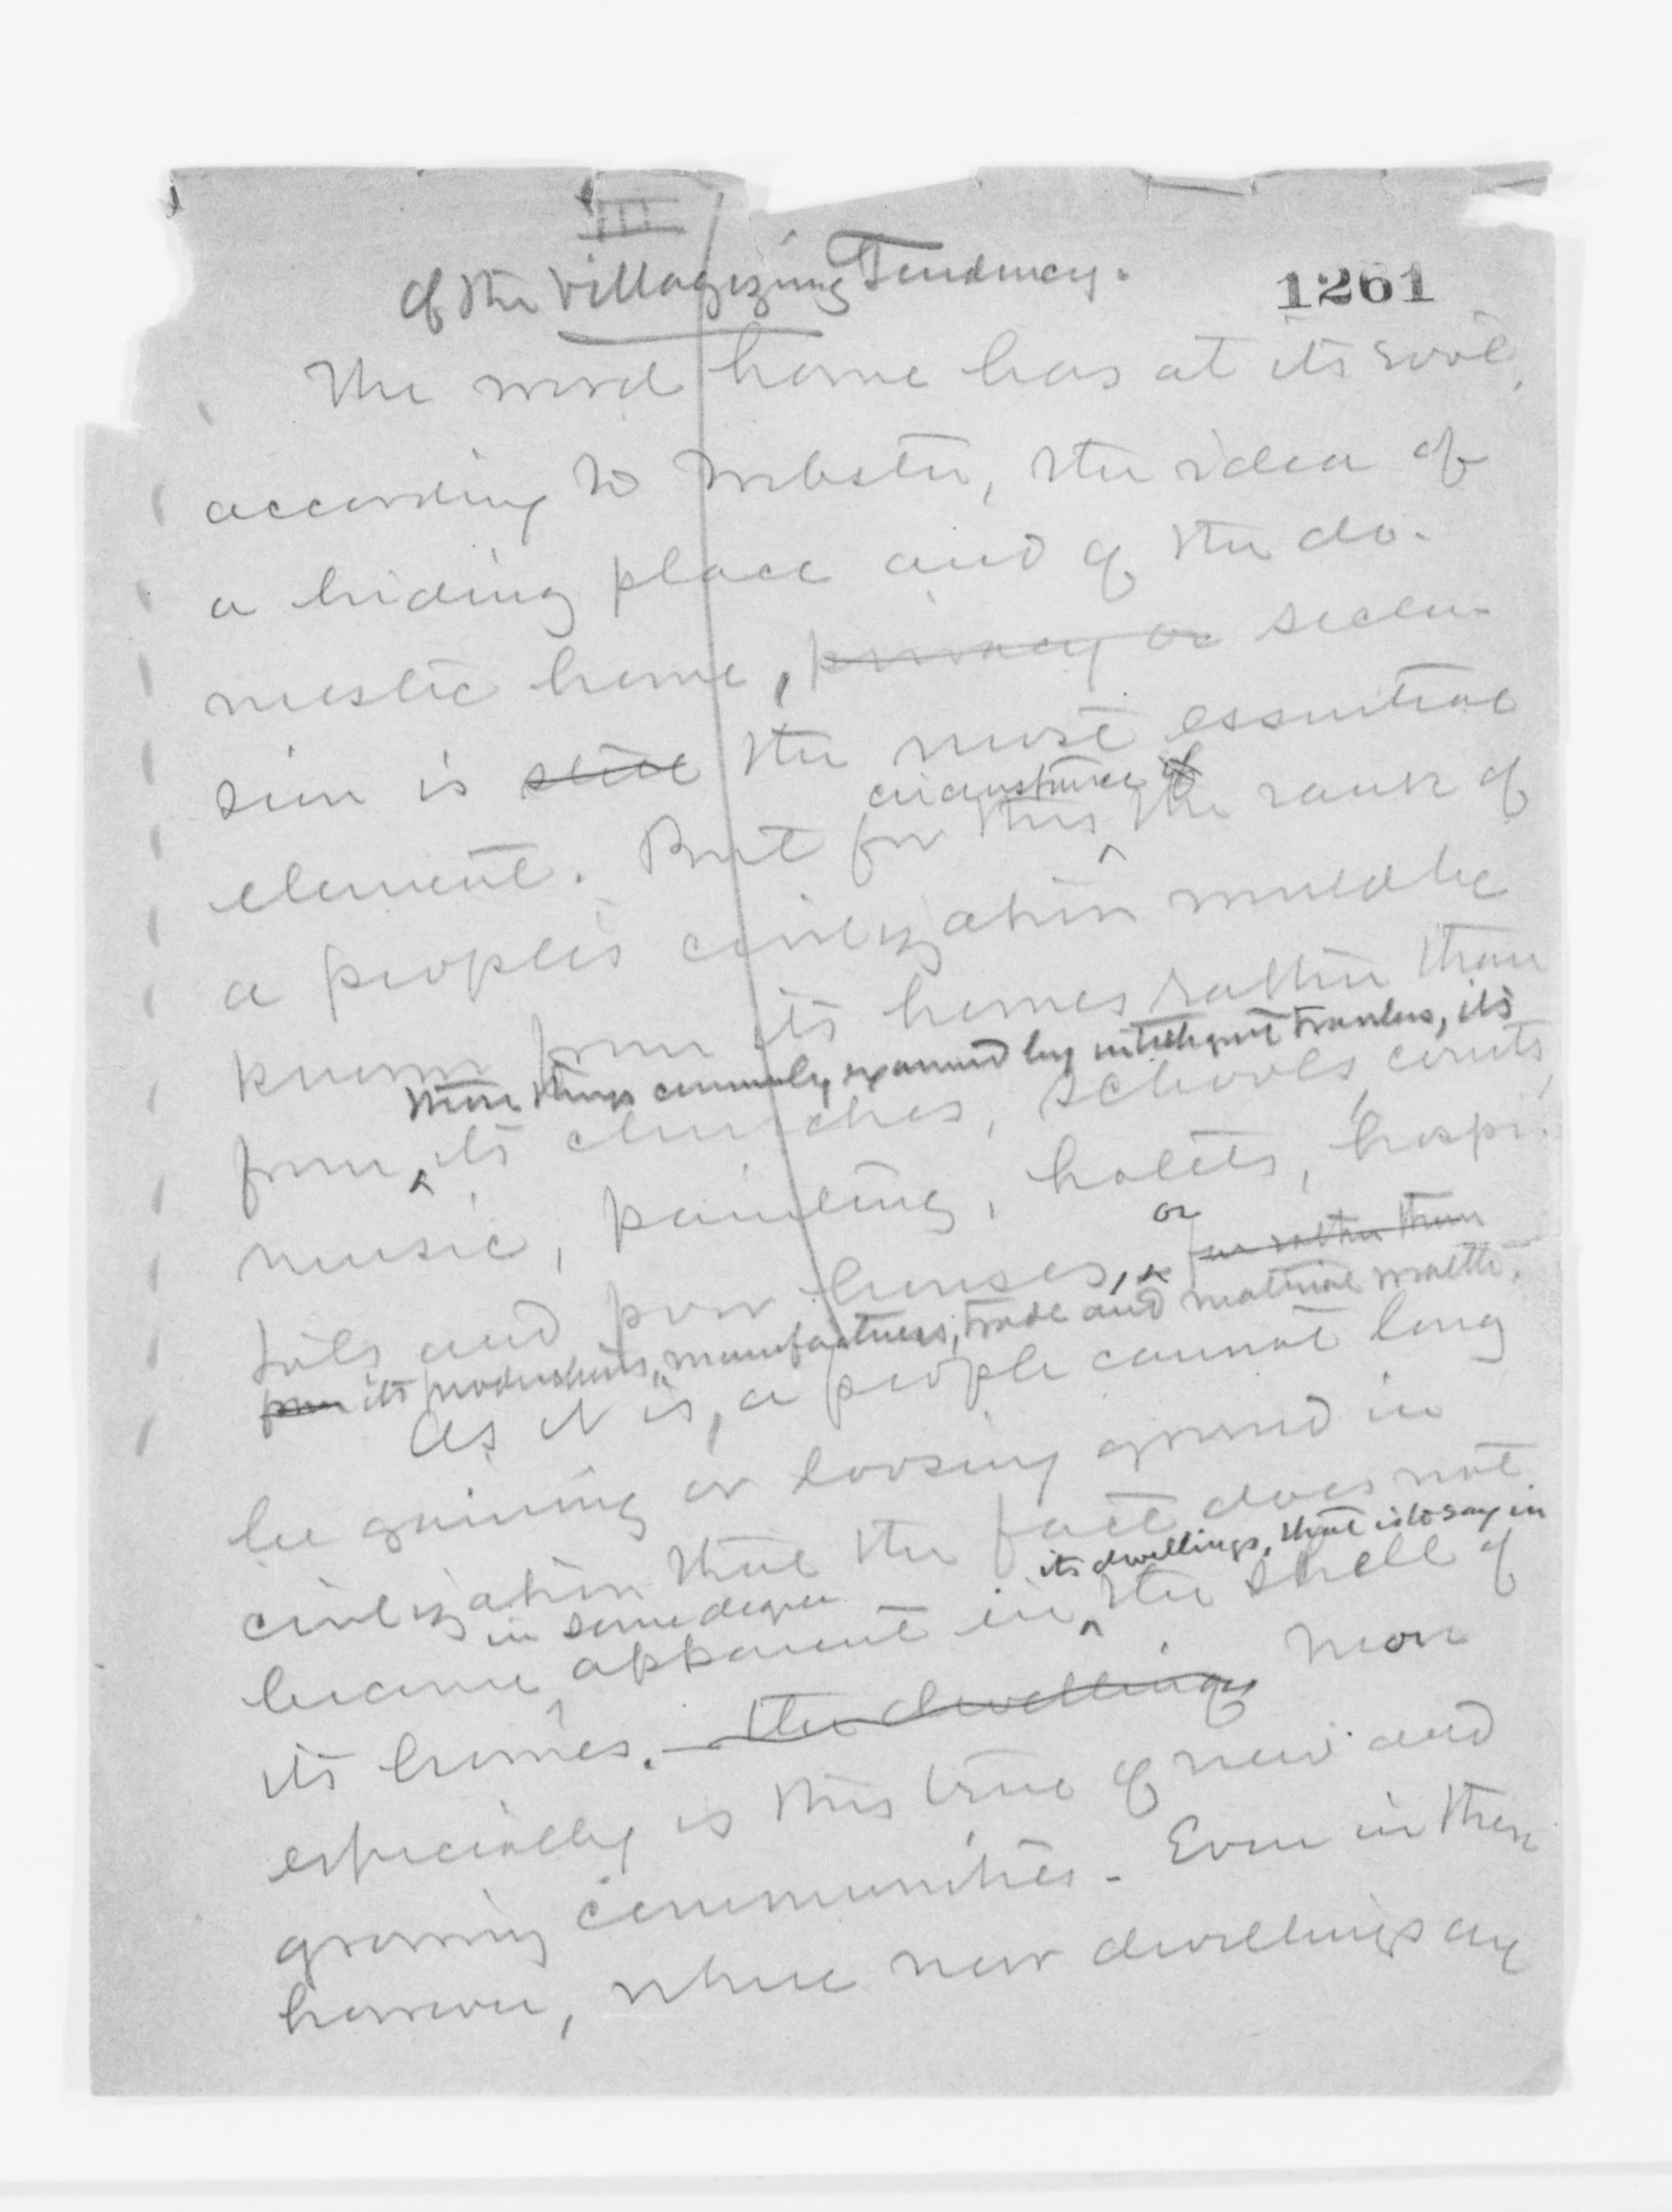 III
Of the Villagizing Tendency.
1261
The word home has at its root,
according to Webster, the idea of
a hiding place and of the do-
mestic home, privacy or seclu-
sion is still the most essential
circumstance of
element. But for this the rank of
a people's civilization would be
known from its homes rather than
more things commonly examined by intelligent travelers, its
from its churches, schools, courts,
music, painting, hotels, hospi-
or
tals and poor houses, or rather than
from its productions, manufactures, trade and material wealth.
As it is, a people cannot long
be gaining or loosing ground in
civilization that the fact does not
its dwellings, that is to say in
in some degree
become apparent in the shell of
its homes. the dwellings More
especially is this true of new and
growing communities. Even in these
however, where new dwellings are